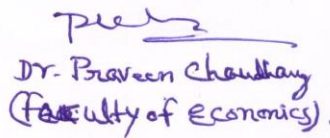 Dr. Praveen Choudhary
(Faculty of Economics).